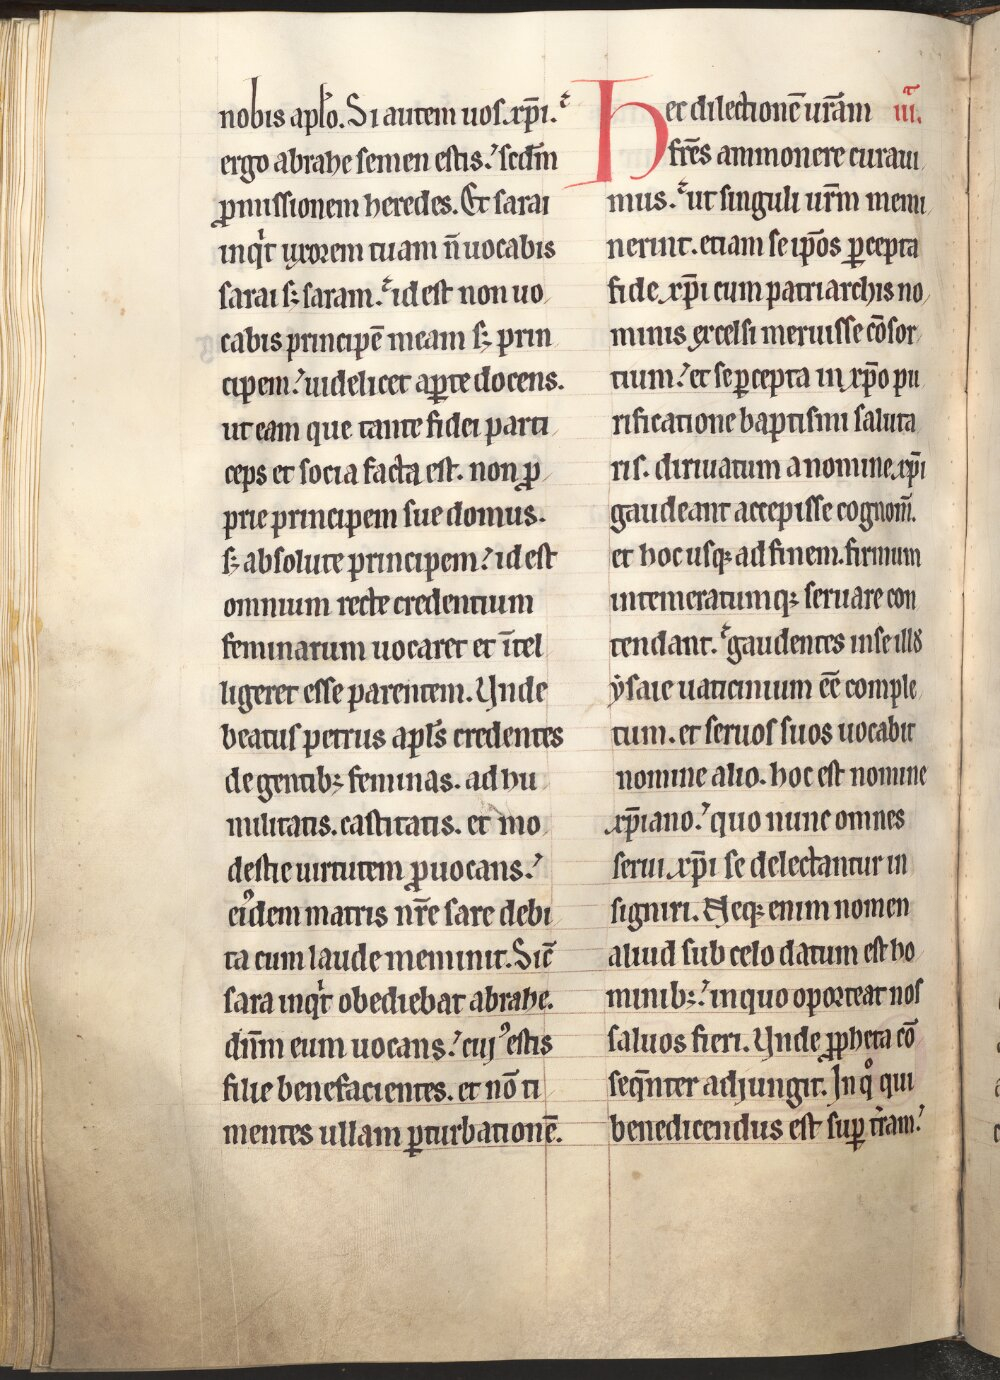 nobis apło. Si autem uos .xp̄i.
ergo abrahe semen estis. scdm̄
ꝓmissionem heredes. Et sarai
inqͥt uxorem tuam n̄ uocabis
sarai sꝫ saram. id est non uo
cabis principē meam sꝫ prin
cipem. uidelicet aꝑte docens.
ut eam que tante fidei parti
ceps et socia facta est. non ꝓ
prie principem sue domus.
sꝫ absolute principem. id est
omnium recte credentium
feminarum uocaret et ītel
ligeret esse parentem. Unde
beatus petrus apłs credentes
de gentibꝫ feminas. ad hu
militatis. castitatis. et mo
destie uirtutem ꝓuocans.
eiꝰdem matris nr̄e sare debi
ta cum laude meminit. Sic̄
sara inqͥt obediebat abrahe.
dn̄m eum uocans. cuiꝰ estis
filie benefacientes. et nō ti
mentes ullam ꝑturbationē.
Hec dilectionē ur̄am iii.
fr̄es ammonere curaui
mus. ut singuli ur̄m memi
nerint. etiam se ip̄os ꝑcepta
fide .xp̄i cum patriarchis no
minis excelsi meruisse cōsor
tium. et se ꝑcepta in .xp̄o pu
rificatione baptismi saluta
ris. diriuatum a nomine .xp̄i
gaudeant accepisse cognom̄.
et hoc usqꝫ ad finem. firmum
intemeratumqꝫ seruare con
tendant. gaudentes in se illd
ẏsaie uaticinium eē comple
tum. et seruos suos uocabit
nomine alio. hoc est nomine
.xp̄iano. quo nunc omnes
serui .xp̄i se delectantur in
signiri. Neqꝫ enim nomen
aliud sub celo datum est ho
minibꝫ. in quo oporteat nos
saluos fieri. Unde ꝓpheta cō
seqn̄ter adjungit. In qͦ qui
benedicendus est suꝑ tr̄am.